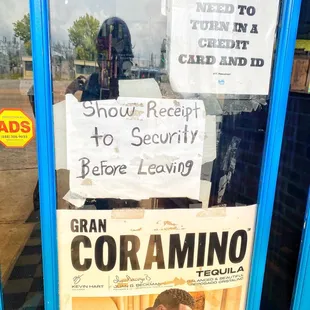 NEED TO
TURN IN A
CREDIT
CARD AND ID
ADS
Show Receipt
to Security
Before Leaving
GRAN
CORAMINO
TEQUILA
KEVIN HART